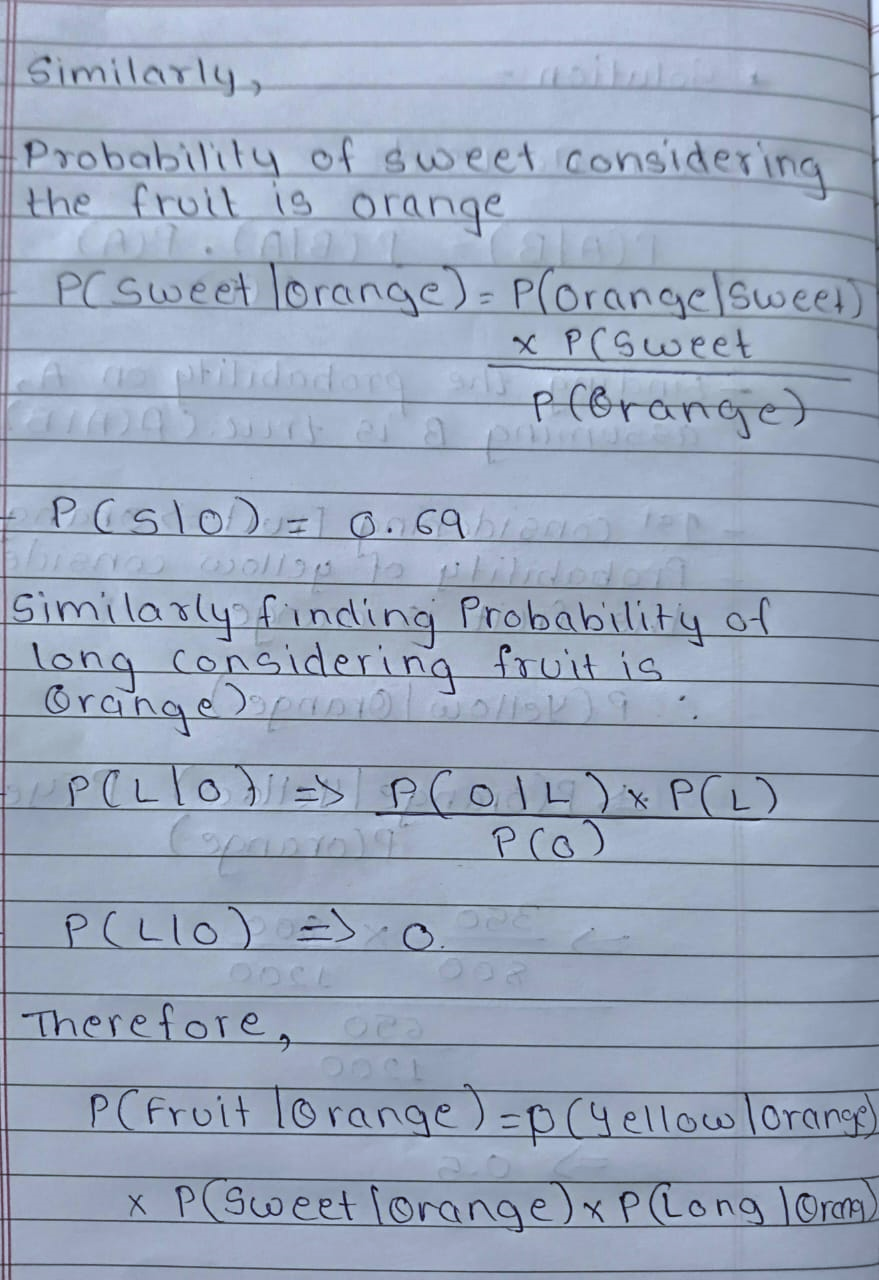 Similarly,
Probability of sweet considering
the fruit is orange
P(sweet|orange) = P(orange|sweet)
x P(sweet
P(Orange)
P(S|O) = 0.69
Similarly finding Probability of
long considering fruit is
Orange) :
P(L|O) => P(O|L) x P(L)
P(O)
P(L|O) => 0.
Therefore,
P(Fruit|Orange) = P(Yellow|orange)
x P(Sweet|orange) x P(Long|Orang)